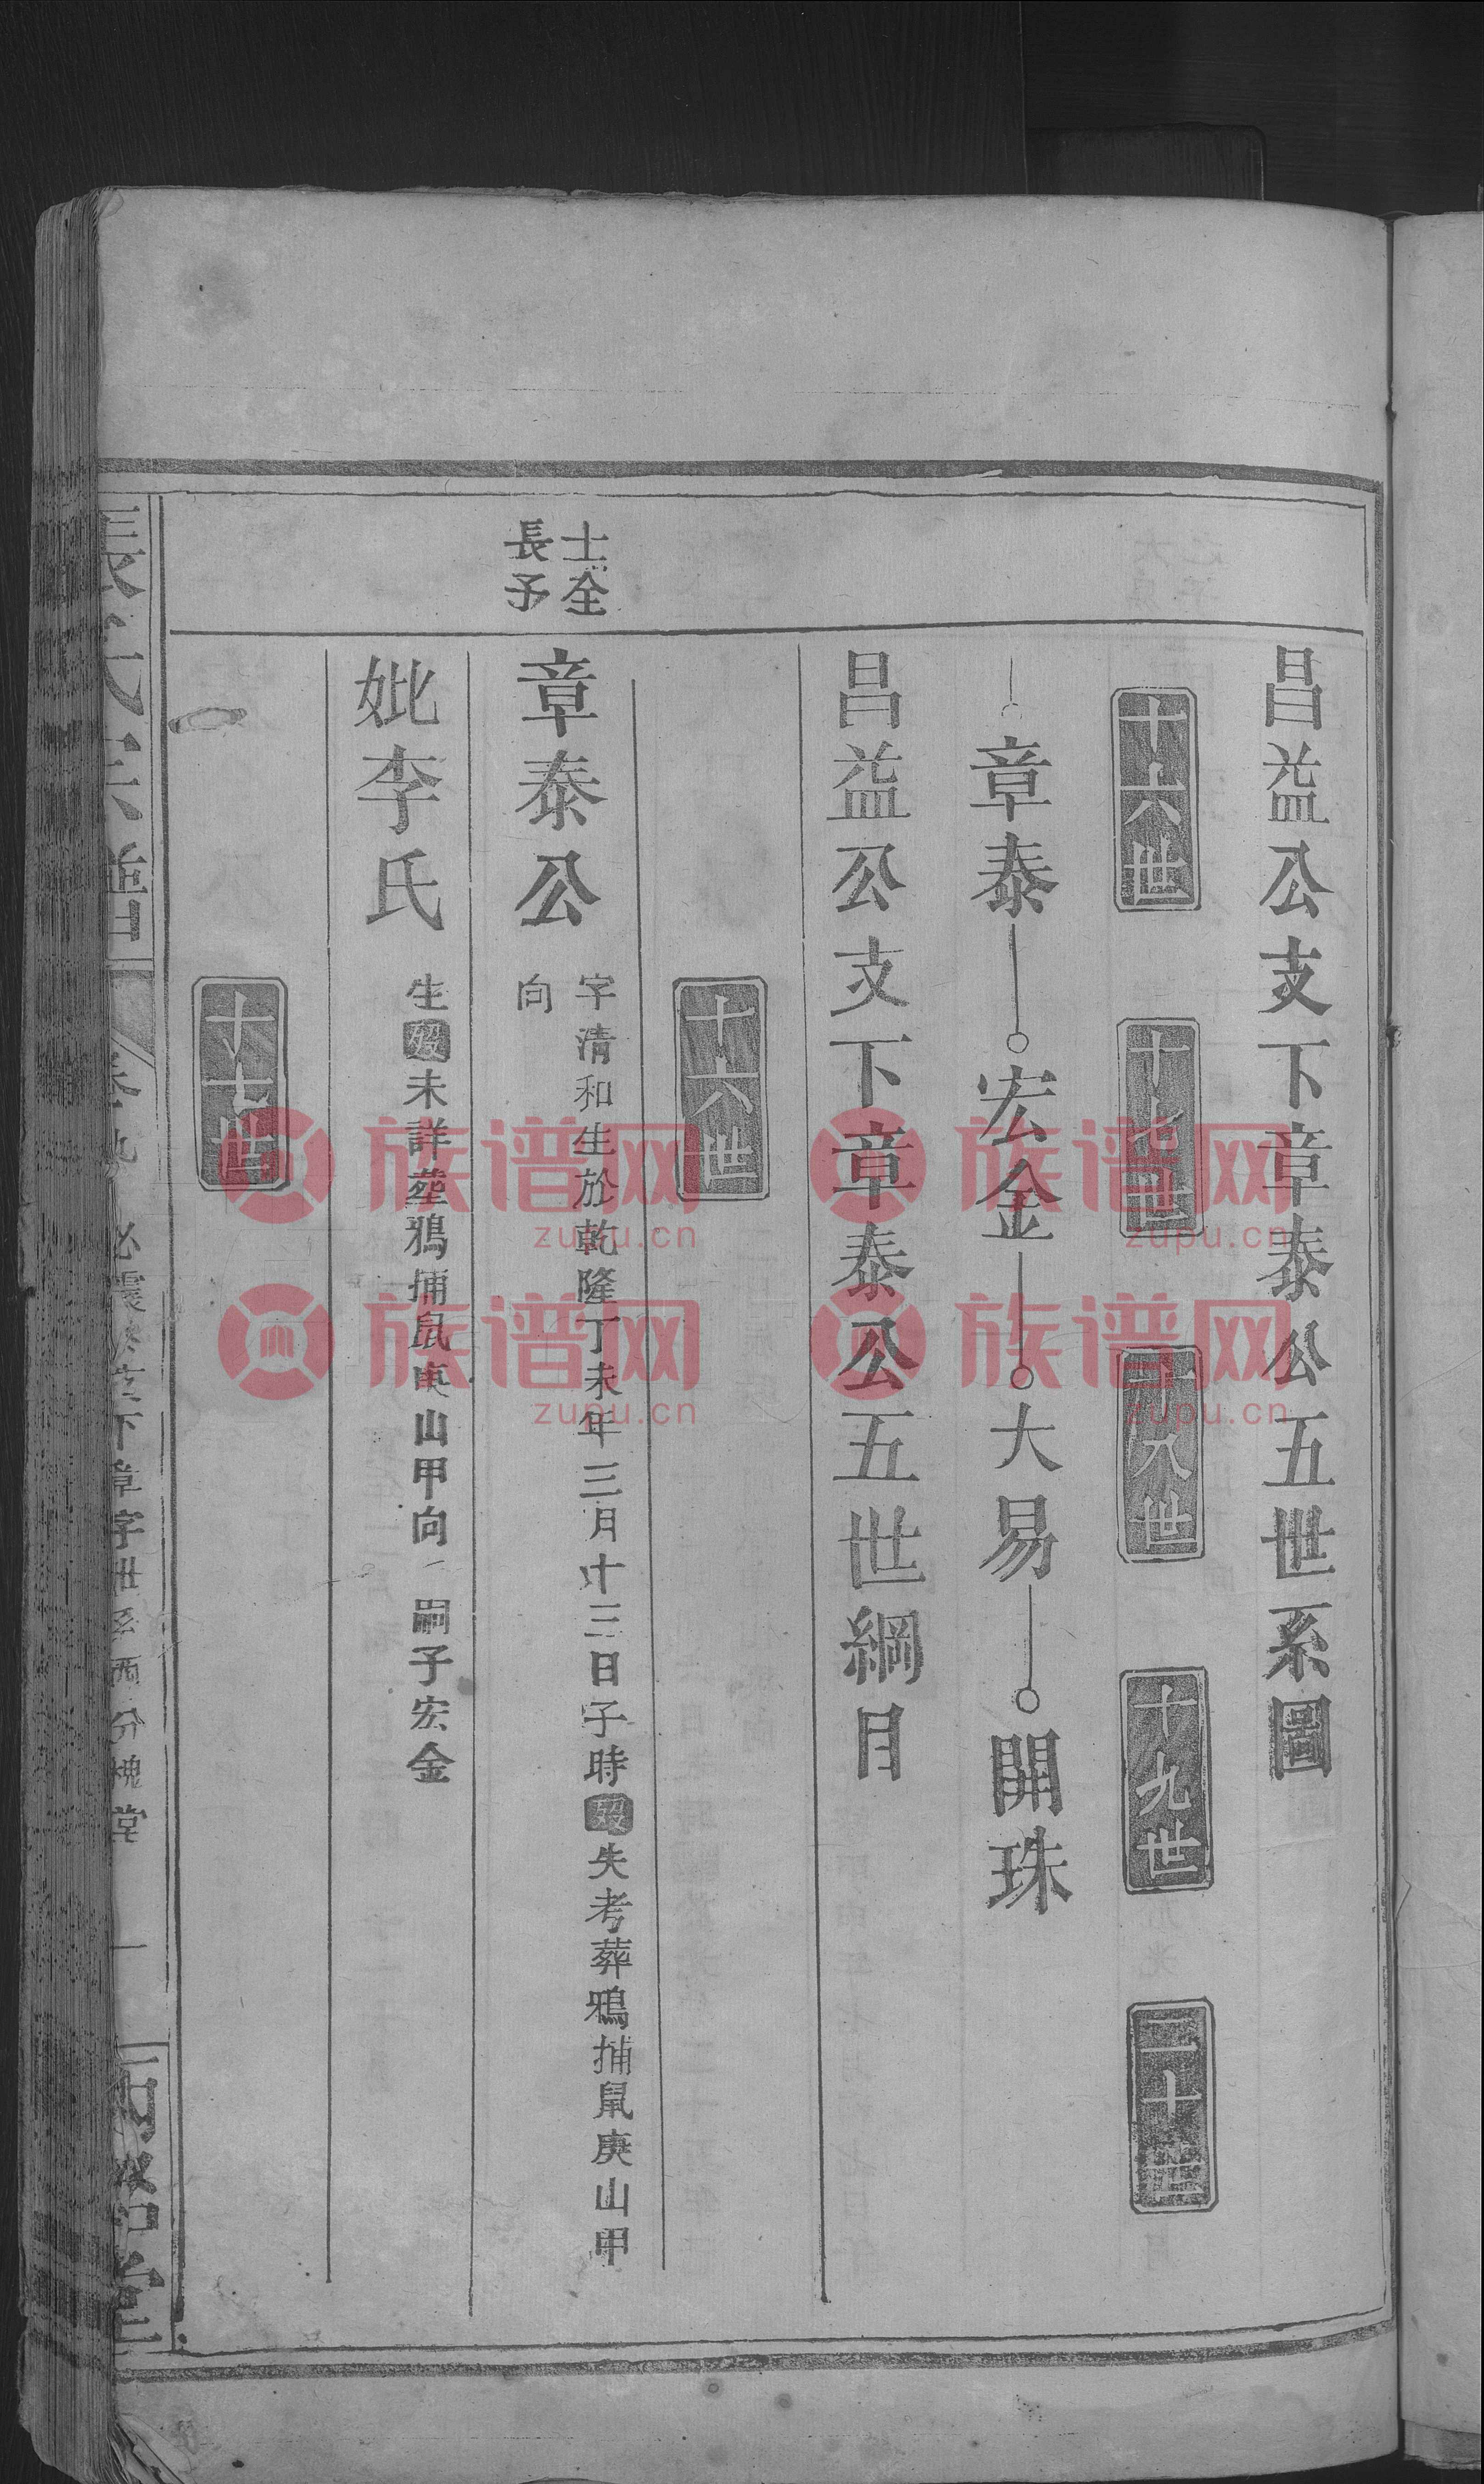 昌益公支下章泰公五世系圖
十六世 十七世 十八世 十九世 二十世
章泰 宏金 大易 開珠
昌益公支下章泰公五世綱目
十六世
士全
長子
章泰公
字清和生於乾隆丁未年三月十三日子時歿失考葬鴉捕鼠庚山甲
向
妣李氏
生歿未詳塟鴉捕鼠庚山甲向 嗣子宏金
十七世
氏宗譜
下章字世系西分槐堂
一
族谱网
zupu.cn
族谱网
zupu.cn
族谱网
zupu.cn
族谱网
zupu.cn